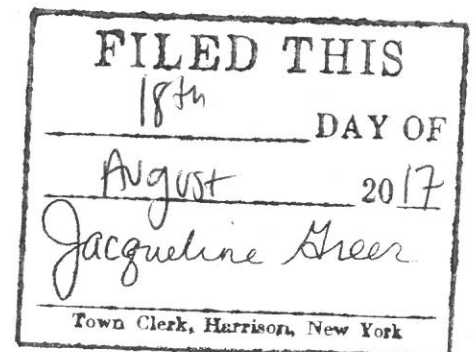 FILED THIS
18th
DAY OF
August 2017
Jacqueline Greer
Town Clerk, Harrison, New York